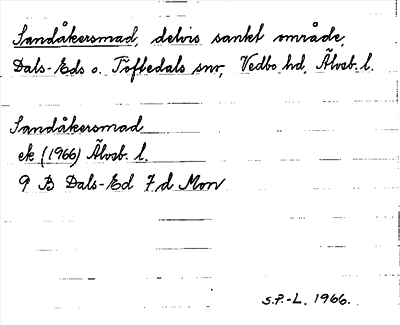 Sandåkersmad, delvis sankt område,
Dals-Eds o. Töftedals snr, Vedbo hd, Älvsb. l.
Sandåkersmad
ek (1966) Älvsb. l.
9 B Dals-Ed 7 d Mon
S.P.-L. 1966.